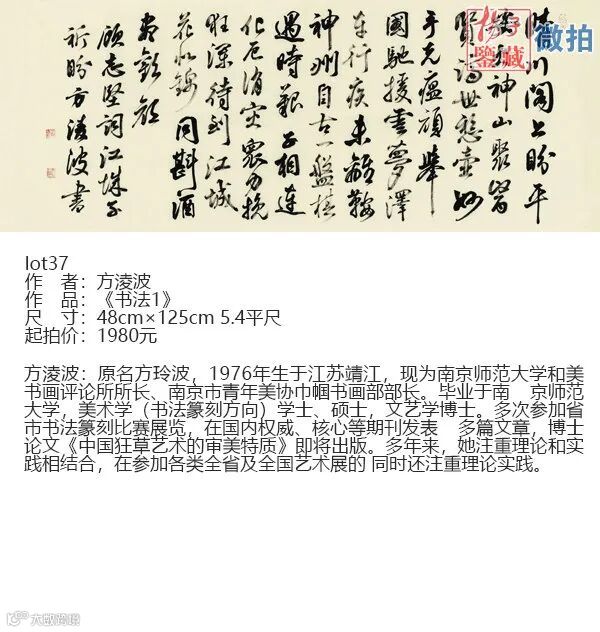 晴川閣上盼平
神山聚醫
賢濟世懸壺妙
手克瘟頑舉
國馳援雲夢澤
車行疾未離鞍
神州自古一盤棋
遇時艱手相連
化厄消災眾力挽
狂瀾待到江城
花似錦同斟酒
盡歡顏
顧志堅詞江城子
祈盼方淩波書
鑒藏
微拍
lot37
作 者：方淩波
作 品：《书法1》
尺 寸：48cm×125cm 5.4平尺
起拍价：1980元
方淩波：原名方玲波，1976年生于江苏靖江，现为南京师范大学和美
书画评论所所长、南京市青年美协巾帼书画部部长。毕业于南 京师范
大学，美术学（书法篆刻方向）学士、硕士，文艺学博士。多次参加省
市书法篆刻比赛展览，在国内权威、核心等期刊发表 多篇文章，博士
论文《中国狂草艺术的审美特质》即将出版。多年来，她注重理论和实
践相结合，在参加各类全省及全国艺术展的 同时还注重理论实践。
大数跨境